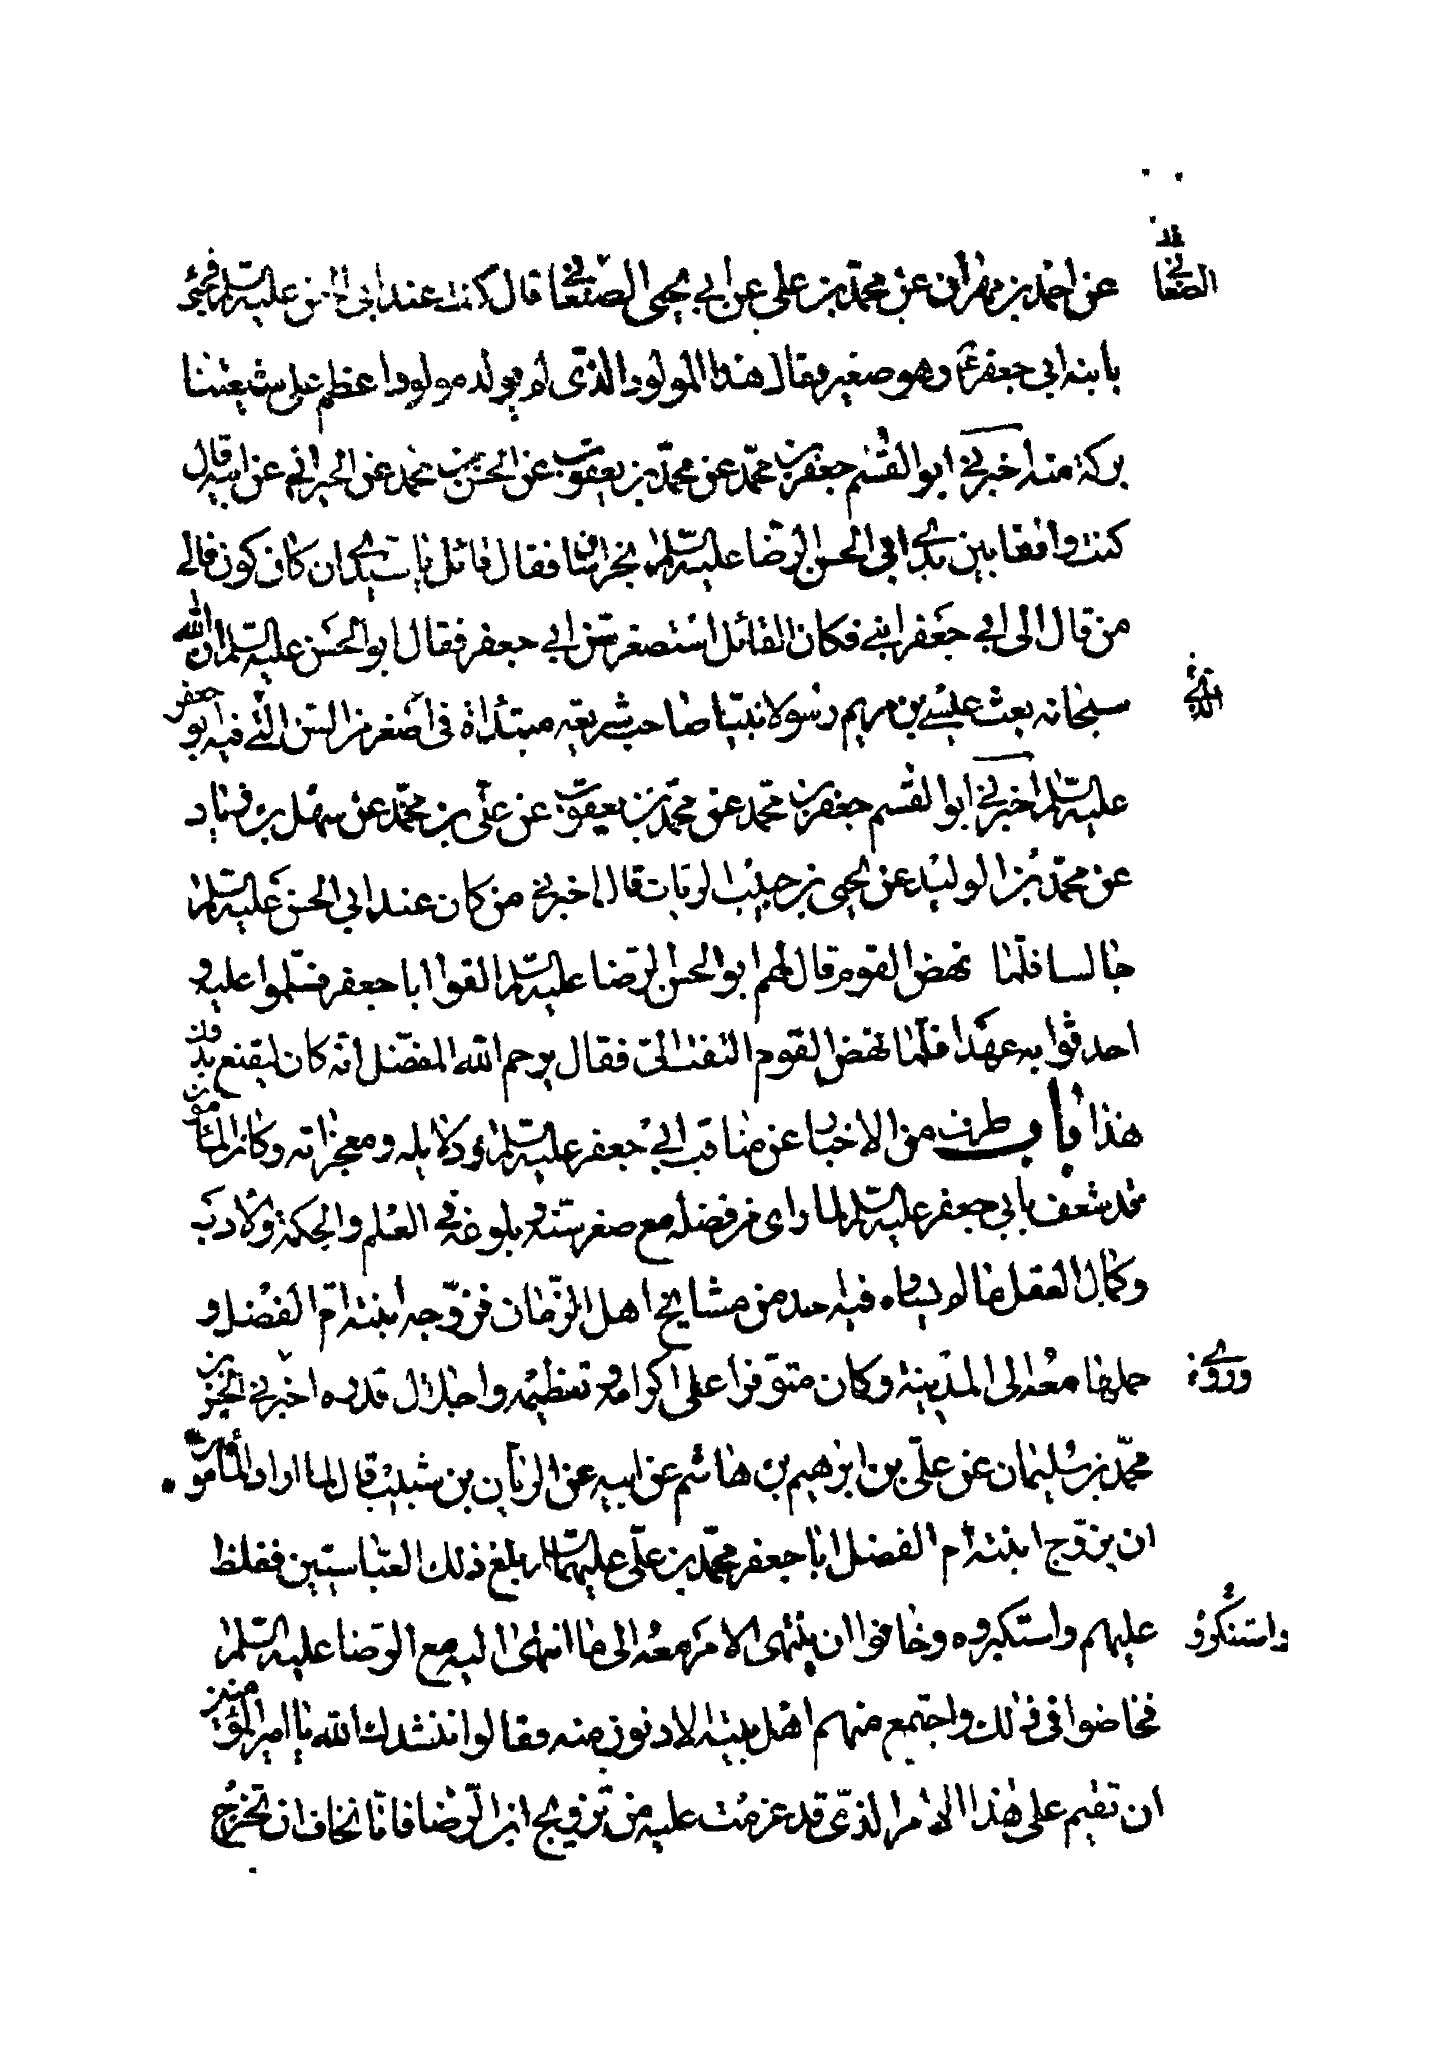 عن احمد بن مهران عن محمد بن علي عن ابي يحيى الصنعاني قال كنت عند ابي الحسن عليه السلم فجيء
الصنعاني
بابنه ابي جعفر ع وهو صغير فقال هذا المولود الذي لم يولد مولود اعظم على شيعتنا
بركة منه اخبرني ابو القسم جعفر بن محمد عن محمد بن يعقوب عن الحسن بن محمد عن الخيراني عن ابيه قال
كنت واقفا بين يدي ابي الحسن الرضا عليه السلم بخراسان فقال قائل يا سيدي ان كان كون فالى
من قال الى ابي جعفر ابني فكان القائل استصغر سن ابي جعفر فقال ابو الحسن عليه السلم ان الله
سبحانه بعث عيسى بن مريم رسولا نبيا صاحب شريعة مبتدأة في اصغر من السن التي فيه ابو جعفر
عليه السلم اخبرني ابو القسم جعفر بن محمد عن محمد بن يعقوب عن علي بن محمد عن سهل بن زياد
عن محمد بن الوليد عن يحيى بن حبيب الزيات قال اخبرني من كان عند ابي الحسن عليه السلم
جالسا فلما نهض القوم قال لهم ابو الحسن الرضا عليه السلم القوا ابا جعفر فسلموا عليه و
احدثوا به عهدا فلما نهض القوم التفت الي فقال يرحم الله المفضل انه كان ليقنع بدون
هذا باب طرف من الاخبار عن مناقب ابي جعفر عليه السلم ودلايله ومعجزاته وكان المامون
قد شعف بابي جعفر عليه السلم لما راى من فضله مع صغر سنه وبلوغه في العلم والحكمة والادب
وكمال العقل ما لم يساوه فيه احد من مشايخ اهل الزمان فزوجه ابنته ام الفضل و
حملها معه الى المدينة وكان متوفرا على اكرامه وتعظيمه واجلال قدره اخبرني الحسن بن
وروى
محمد بن سليمان عن علي بن ابرهيم بن هاشم عن ابيه عن الريان بن شبيب قال لما اراد المامون
ان يزوج ابنته ام الفضل ابا جعفر محمد بن علي عليهما السلم بلغ ذلك العباسيين فغلظ
عليهم واستكبروه وخافوا ان ينتهى الامر معه الى ما انتهى اليه مع الرضا عليه السلم
واستنكروه
فخاضوا في ذلك واجتمع منهم اهل بيته الادنون منه فقالوا ننشدك الله يا امير المؤمنين
ان تقيم على هذا الامر الذي قد عزمت عليه من تزويج ابن الرضا فانا نخاف ان تخرج